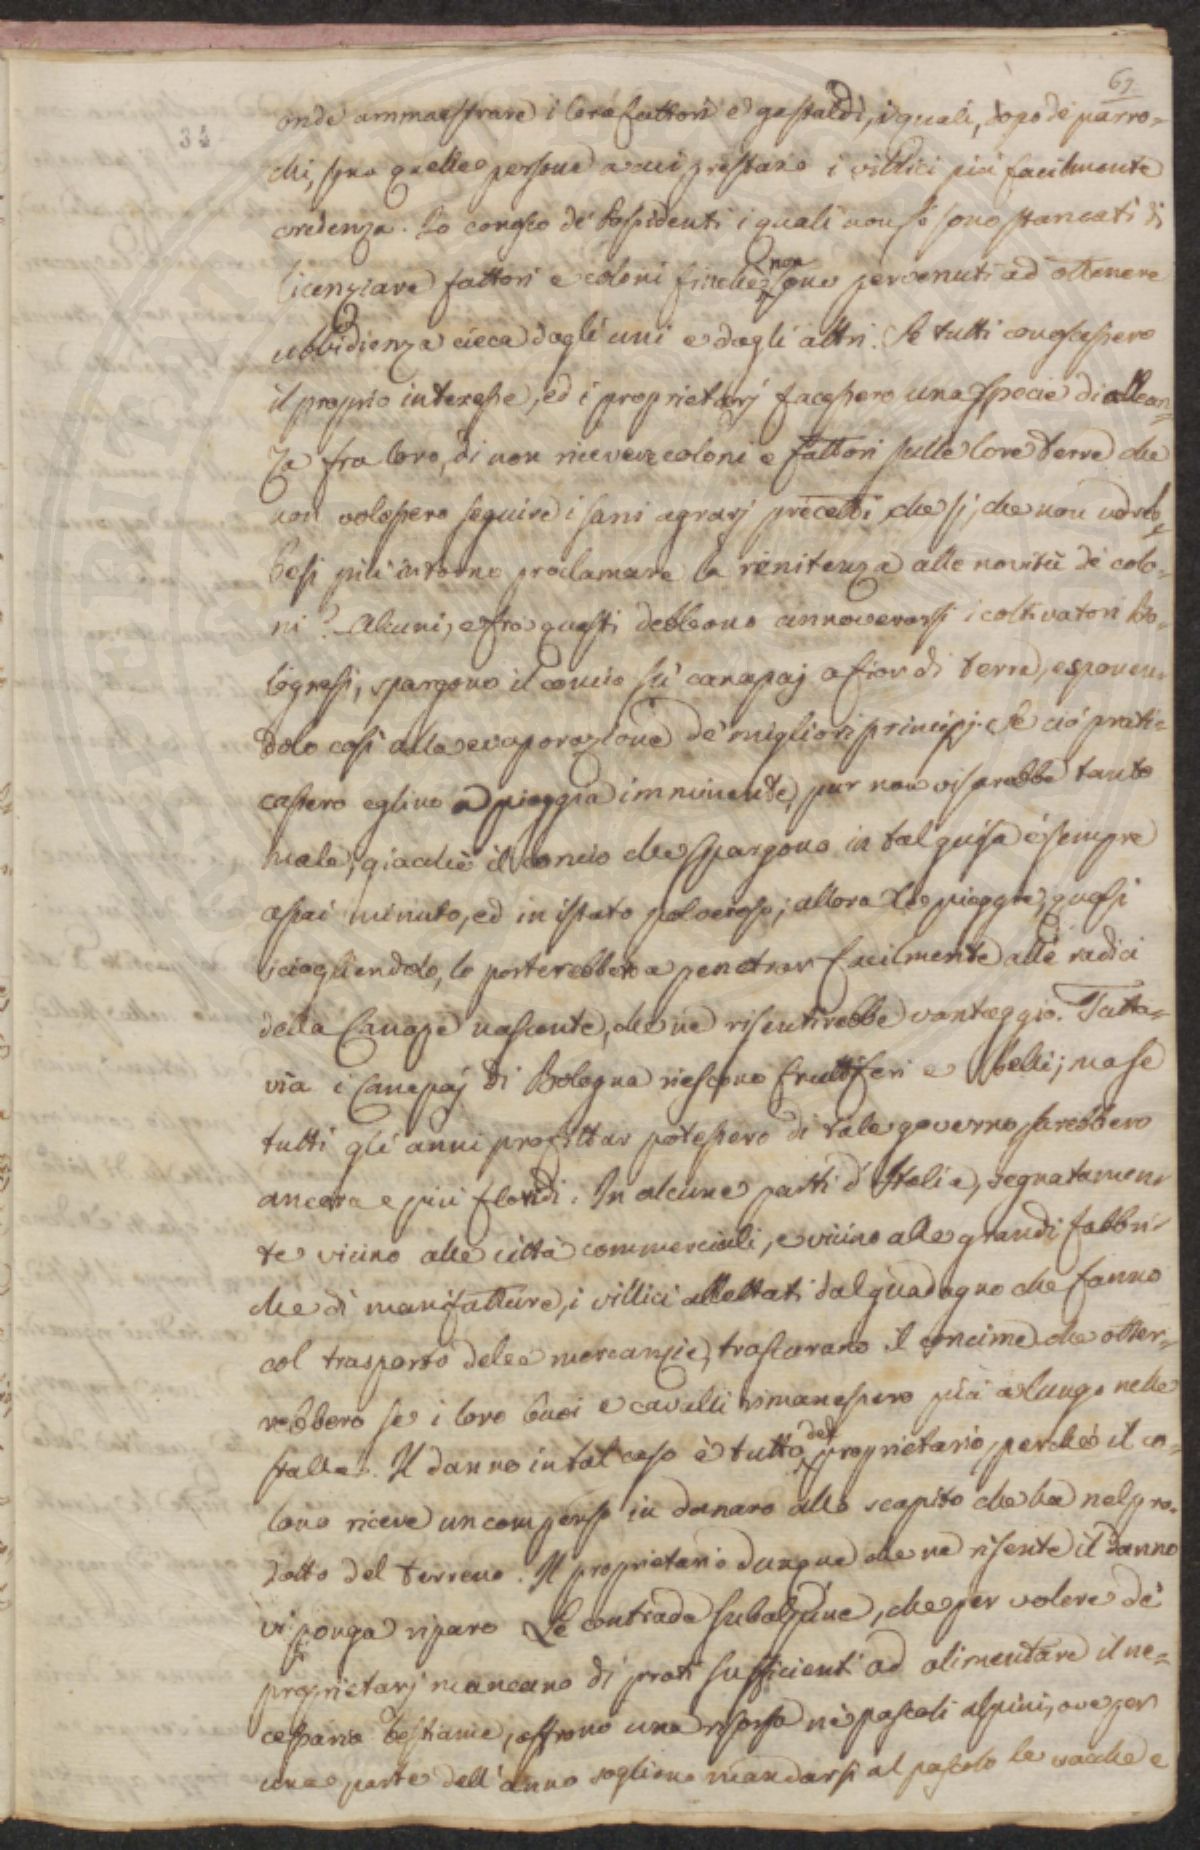 67.
34
onde ammaestrare i loro fattori e gastaldi, i quali, dopo de' parro-
chi, sono quelle persone a cui prestano i villici più facilmente
credenza. Io conosco de' Possidenti i quali non si sono stancati di
licenziare fattori e coloni finchè non sono pervenuti ad ottenere
ubbidienza cieca dagli uni e dagli altri. Se tutti conoscessero
il proprio interesse, ed i proprietarj facessero una specie di allean-
za fra loro, di non ricevere coloni e fattori sulle loro terre che
non volessero seguire i sani agrarj precetti, che sì, che non udreb-
besi più intorno proclamare la renitenza alle novità de' colo-
ni? Alcuni, e fra questi debbono annoverarsi i coltivatori Bo-
lognesi, spargono il concio su' canapaj a fior di terra, esponen-
dolo così alla evaporazione de' migliori principj. Se ciò prati-
cassero eglino a pioggia imminente, pur non vi sarebbe tanto
male, giacchè il concio che spargono in tal guisa è sempre
assai minuto, ed in istato polveroso; allora le pioggie, quasi
isciogliendolo, lo porterebbero a penetrar facilmente alle radici
della Canape nascente, che ne risentirebbe vantaggio. Tutta-
via i Canapaj di Bologna riescono fruttiferi e belli; ma se
tutti gli anni profittar potessero di tale governo, sarebbero
ancora e più floridi. In alcune parti d'Italia, segnatamen-
te vicino alle città commerciali, e vicino alle grandi fabbri-
che di manifatture, i villici allettati dal guadagno che fanno
col trasporto delle mercanzie, trascurano il concime che otter-
rebbero se i loro buoi e cavalli rimanessero più a lungo nelle
stalle. Il danno in tal caso è tutto del proprietario, perchè il co-
lono riceve un compenso in danaro allo scapito che ha nel pro-
dotto del terreno. Il proprietario dunque che ne risente il danno
vi ponga riparo Le contrade subalpine, che per volere de'
proprietarj mancano di prati sufficienti ad alimentare il ne-
cessario bestiame, offrono una risorsa ne' pascoli alpini, ove per
una parte dell'anno sogliono mandarsi al pascolo le vacche e